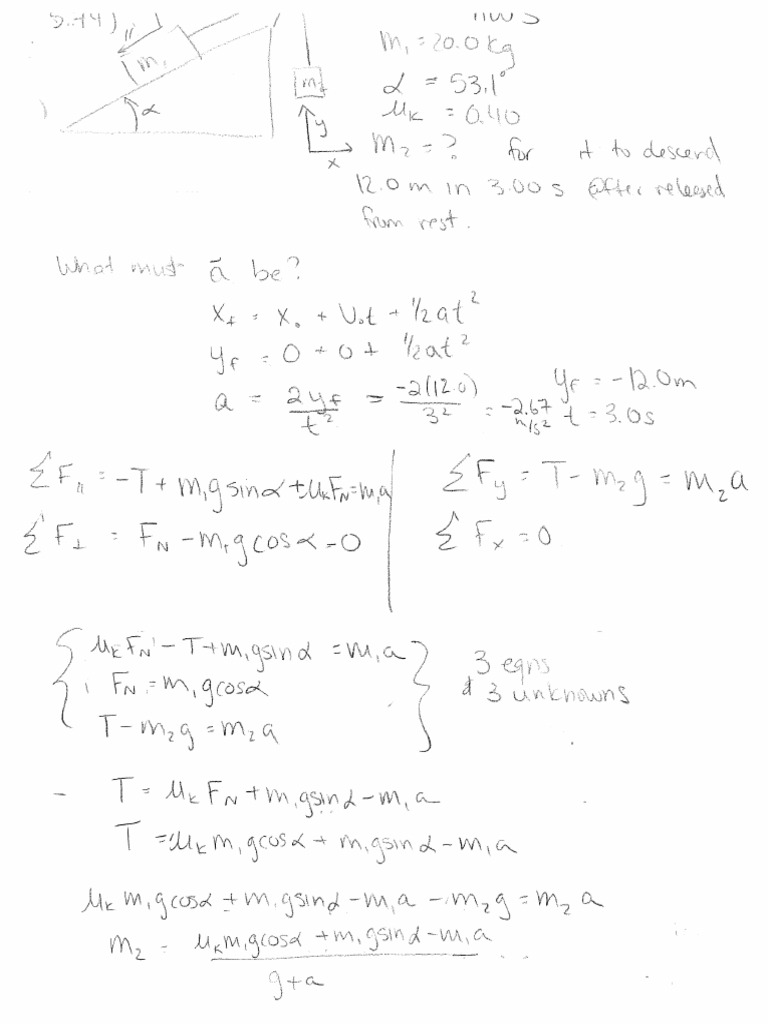 5.44)
HW 5
11
m₁
α
m₂
y
x
m₁ = 20.0 kg
α = 53.1°
μₖ = 0.40
m₂ = ? for it to descend
12.0 m in 3.00 s after released
from rest.
What must a be?
x_f = x₀ + v₀t + ½at²
y_f = 0 + 0 + ½at²
y_f = -12.0m
a = 2y_f/t² = -2(12.0)/3² = -2.67 m/s²
t = 3.0s
ΣF∥ = -T + m₁g sinα + μₖF_N = m₁a
ΣF_y = T - m₂g = m₂a
ΣF⊥ = F_N - m₁g cosα = 0
ΣF_x = 0
μₖF_N - T + m₁g sinα = m₁a
F_N = m₁g cosα
T - m₂g = m₂a
3 eqns
& 3 unknowns
- T = μₖF_N + m₁g sinα - m₁a
T = μₖm₁g cosα + m₁g sinα - m₁a
μₖm₁g cosα + m₁g sinα - m₁a - m₂g = m₂a
m₂ = (μₖm₁g cosα + m₁g sinα - m₁a)/(g+a)